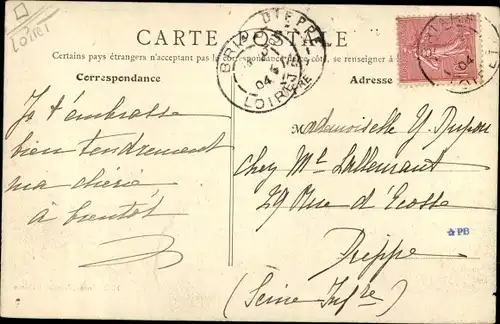 Loiret
CARTE POSTALE
Certains pays étrangers n'acceptant pas la correspondance de ce côté, se renseigner à la
Correspondance
Adresse
DIEPPE
BRI
04
LOIRE
INFRE
04
Je t'embrasse
bien tendrement
ma chérie,
à bientôt
Mademoiselle Y. Dupon
Chez Me Lallemant
29 Rue d'Ecosse
Dieppe
(Seine Infre)
PB